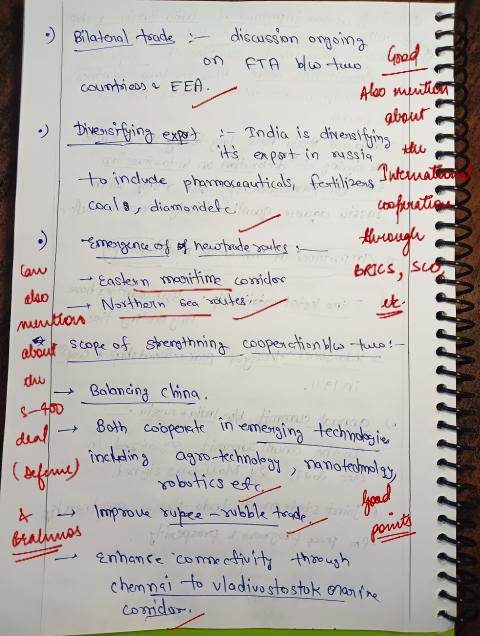 •) Bilateral trade :- discussion ongoing
on FTA b/w two
countriess & EEA.
•) Diversifying export :- India is diversifying
it's export in russia
to include pharmaceuticals, fertilizers
coals, diamond etc.
•) Emergence of new trade routes :-
→ Eastern maritime corridor
→ Northern sea routes
scope of strengthning cooperation b/w two:-
→ Balancing china.
→ Both cooperate in emerging technologies
including agro-technology, nanotechnolgy,
robotics etc.
→ Improve rupee-rubble trade.
→ Enhance connectivity through
chennai to vladivostostok marine
corridor.
Good
Also mention
about
the
International
cooperation
through
BRICS, SCO,
etc.
Can
also
mention
about
the
S-400
deal
(Defence)
&
Brahmos
Good
points